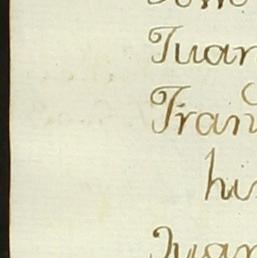 Juan
Fran
hi
Juan